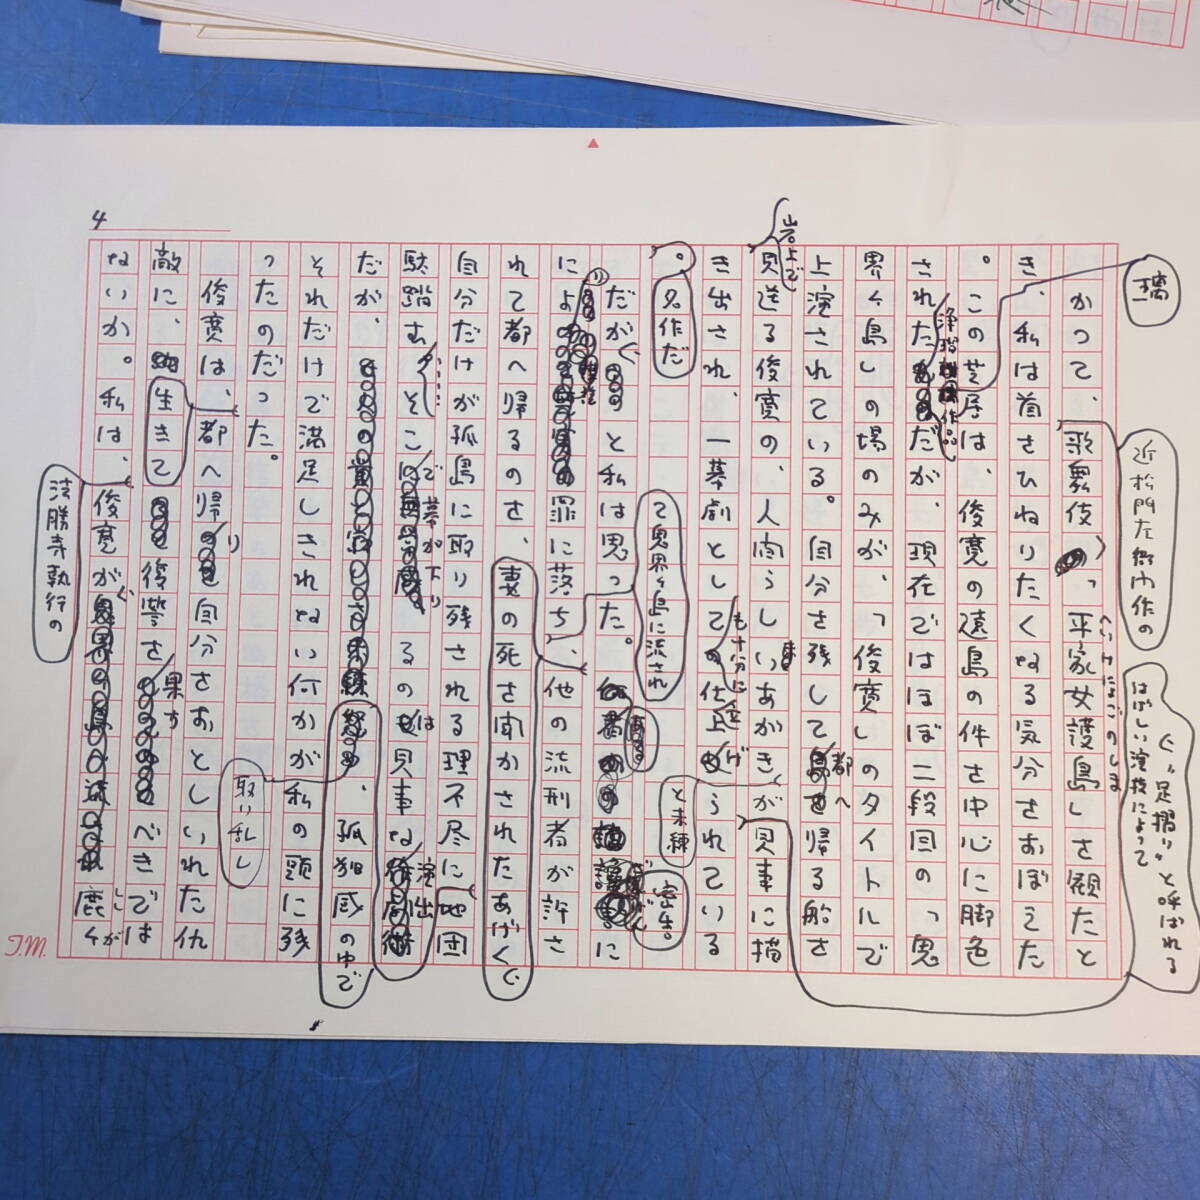 4
璃
近松門左衛門作の
“足摺り”と呼ばれる
はげしい演技によって
かつて、歌舞伎、「平家女護島」を観たと
へいけにょごのしま
き、私は首をひねりたくなる気分をおぼえた
。この芝居は、俊寛の遠島の件を中心に脚色
されただが、現在ではほぼ二段目の「鬼
浄瑠璃作品
界ヶ島」の場のみが、「俊寛」のタイトルで
上演されている。自分を残して都へ帰る船を
岩上で
見送る俊寛の、人間らしいあがきが見事に描
と未練
き出され、一幕劇としても十分に仕上げられている
。名作だ
て鬼界ヶ島に流され
密告。
だが、と私は思った。に
によ罪に落ち、他の流刑者が許さ
れて都へ帰るのを、妻の死を聞かされたあげく
自分だけが孤島に取り残される理不尽に地団
駄踏むそこで幕が下りるのは見事な演出
だが、、孤独感の中で
取り乱し
それだけで満足しきれない何かが私の頭に残
ったのだった。
俊寛は、都へ帰り自分をおとしいれた仇
敵に、生きて復讐を果すべきでは
ないか。私は、俊寛が鹿ヶ
ししが
法勝寺執行の
T.M.